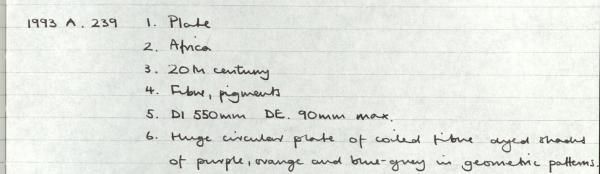 1993 A. 239 1. Plate
2. Africa
3. 20th century
4. Fibre, pigments
5. DI 550mm DE. 90mm max.
6. Huge circular plate of coiled fibre dyed shades
of purple, orange and blue-grey in geometric patterns.